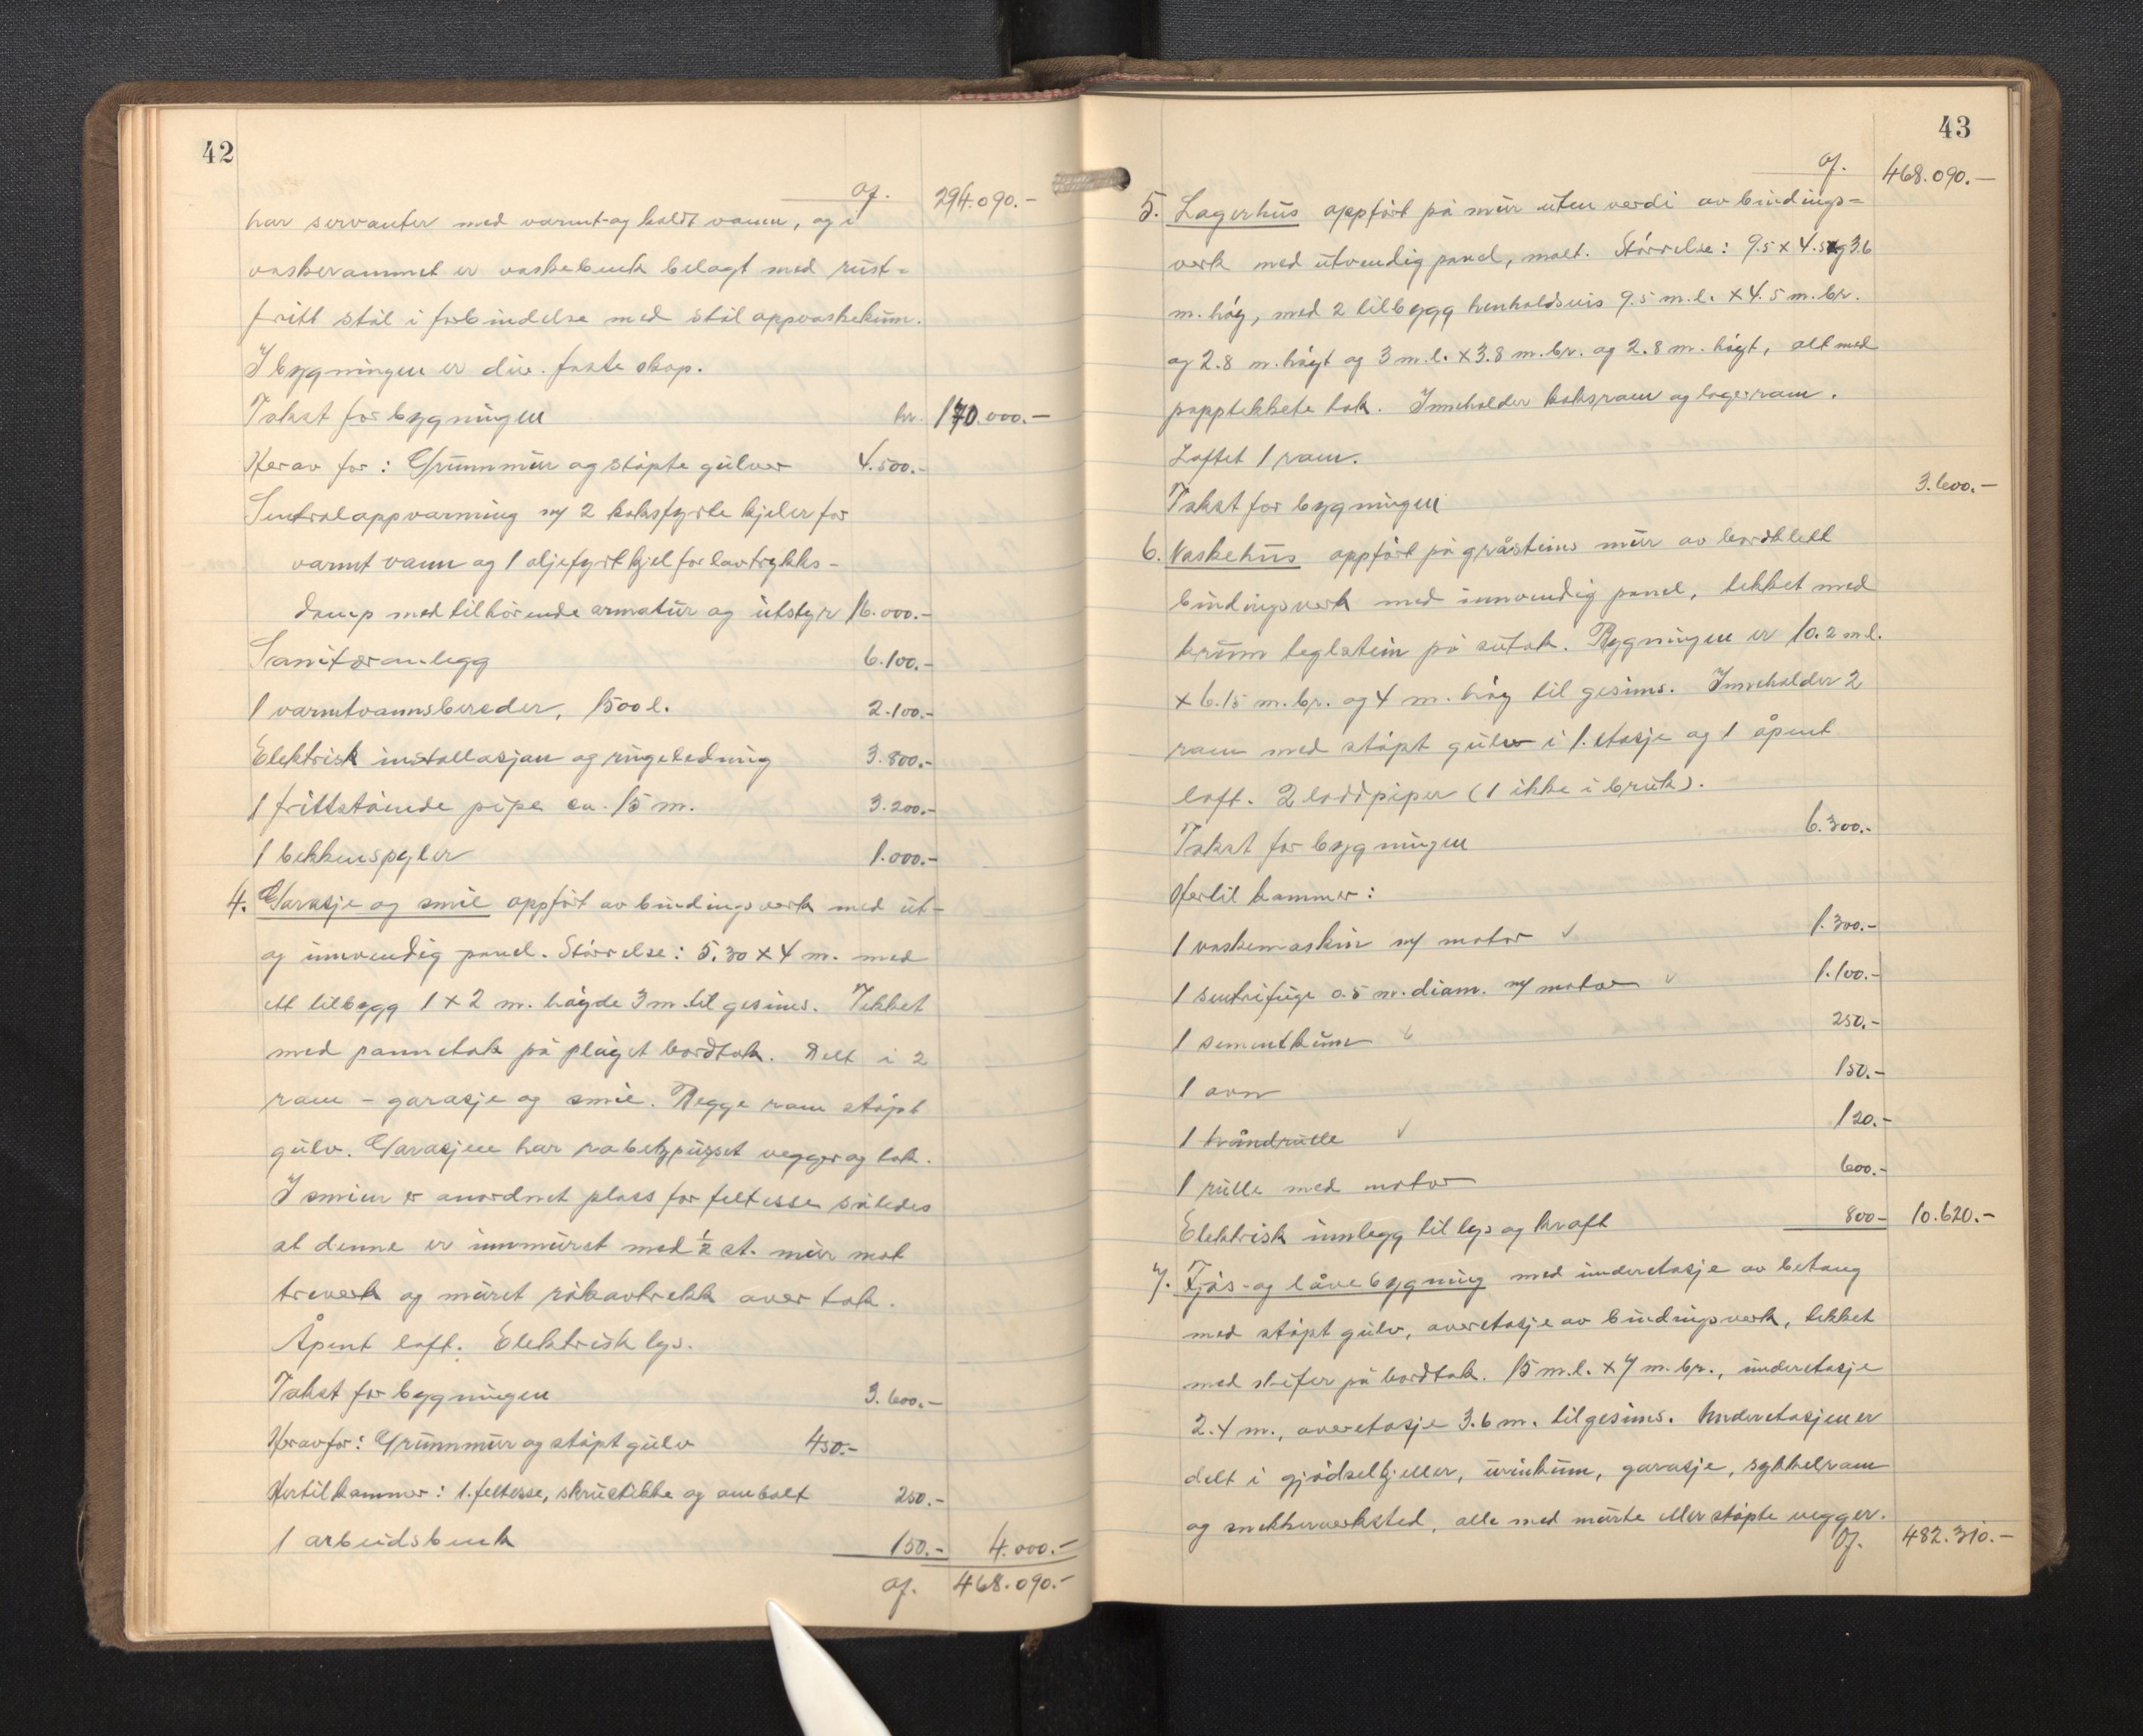 42
Of. 294.090.-
har servanter med varmt-og koldt vann, og i
vaskerommet er vaskebenk belagt med rust-
fritt stål i forbindelse med stål oppvaskekum.
I bygningen er div. faste skap.
Takst for bygningen kr. 170.000.-
Herav for: Grunnmur og støpte gulver 4.500.-
Sentraloppvarming m/ 2 koksfyrte kjeler for
varmt vann og 1 oljefyrt kjel for lavtrykks-
damp med tilhörende armatur og utstyr 16.000.-
Sanitæranlegg 6.100.-
1 varmtvannsbereder, 1500 l. 2.100.-
Elektrisk installasjon og ringeledning 3.800.-
1 frittstående pipe ca. 15 m. 3.200.-
1 bekkenspyler 1.000.-
4. Garasje og smie oppført av bindingsverk med ut-
og innvendig panel. Størrelse: 5.30 x 4 m. med
ett tilbygg 1 x 2 m. høyde 3 m. til gesims. Tekket
med pannetak på pløyet bordtak. Delt i 2
rom - garasje og smie. Begge rom støpt
gulv. Garasjen har rabetzpusset vegger og tak.
I smien er anordnet plass for feltesse således
at denne er innmuret med ½ st. mur mot
treverk og muret røkavtrekk over tak.
Åpent loft. Elektrisk lys.
Takst for bygningen 3.600.-
Herav for: Grunnmur og støpt gulv 450.-
Hertil kommer: 1. feltesse, skrustikke og ambolt 250.-
1 arbeidsbenk 150.- 4.000.-
Of. 468.090.-
43
Of. 468.090.-
5. Lagerhus oppført på mur uten verdi av bindings=
verk med utvendig panel, malt. Størrelse: 9.5 x 4.5 og 3.6
m. høy, med 2 tilbygg henholdsvis 9.5 m.l. x 4.5 m.br.
og 2.8 m. høyt og 3 m.l. x 3.8 m.br. og 2.8 m. høyt, alt med
papptekkete tak. Inneholder koksrom og lagerrom.
Loftet 1 rom.
Takst for bygningen 3.600.-
6. Vaskehus oppført på gråsteins mur av bordklett
bindingsverk med innvendig panel, tekket med
krum teglstein på sutak. Bygningen er 10.2 m.l.
x 6.15 m.br. og 4 m. høy til gesims. Inneholder 2
rom med støpt gulv i 1. etasje og 1 åpent
loft. 2 loddpiper (1 ikke i bruk).
Takst for bygningen 6.300.-
Hertil kommer:
1 vaskemaskin m/ motor ✓ 1.300.-
1 sentrifuge 0.5 m. diam. m/ motor ✓ 1.100.-
1 sementkum 250.-
1 ovn 150.-
1 håndrulle ✓ 120.-
1 rulle med motor 600.-
Elektrisk innlegg til lys og kraft 800.- 10.620.-
7. Fjøs- og låvebygning med underetasje av betong
med støpt gulv, overetasje av bindingsverk, tekket
med skifer på bordtak. 15 m.l. x 7 m.br., underetasje
2.4 m., overetasje 3.6 m. til gesims. Underetasjen er
delt i gjødselkjeller, urinkum, garasje, sykkelrom
og snekkerverksted, alle med murte eller støpte vegger.
Of. 482.310.-